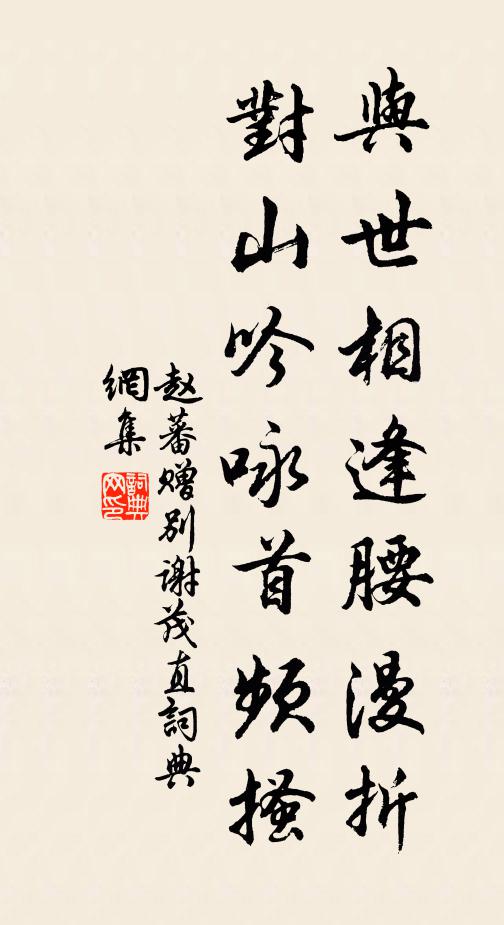 與世相逢腰漫折
對山吟咏首頻搔
赵蕃赠别谢茂直詞典
網集
詞典
网印